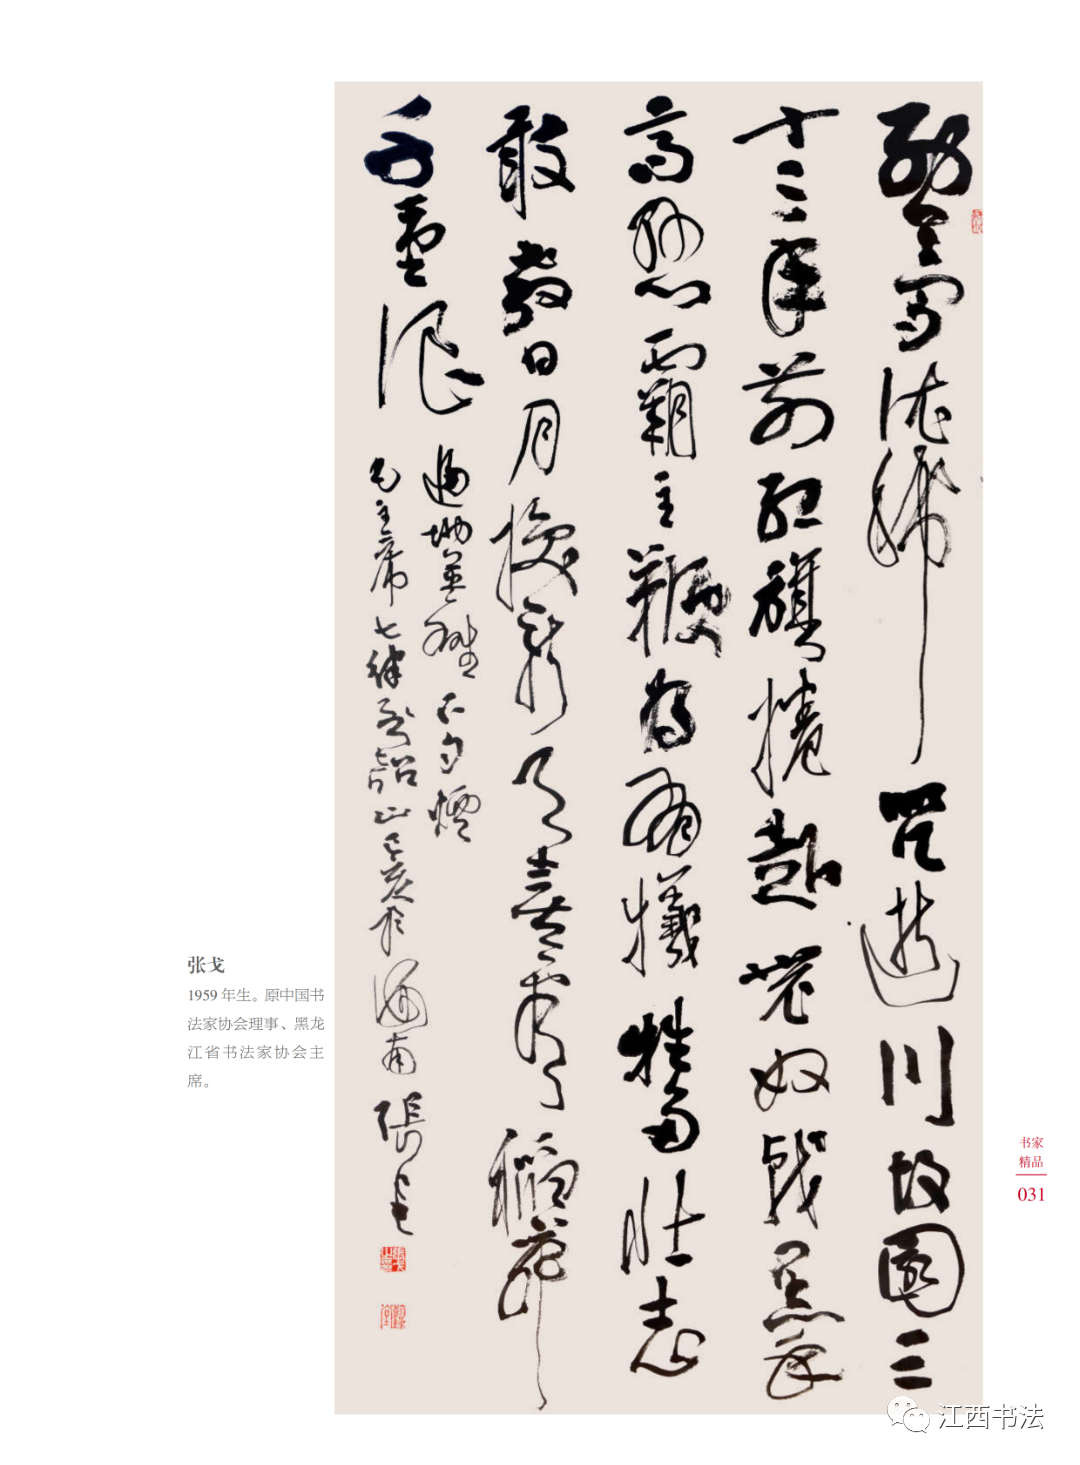 別夢依稀咒逝川故園三
十二年前紅旗捲起農奴戟黑手
高懸霸主鞭為有犧牲多壯志
敢教日月換新天喜看稻菽
千重浪
遍地英雄下夕煙
毛主席七律到韶山己亥於海南張戈
张戈
1959 年生。原中国书
法家协会理事、黑龙
江省书法家协会主
席。
书家
精品
031
江西书法